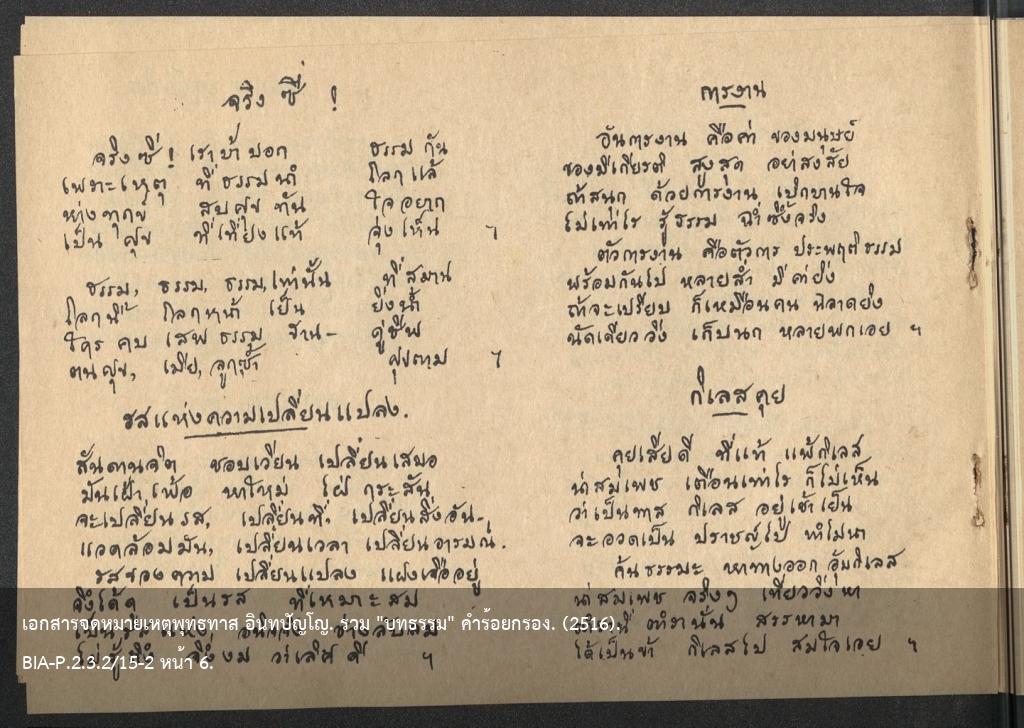 จริง ซี่ !
จริงซี่! เราบ้าบอก ธรรม กัน
เพราะเหตุ ที่ธรรมนำ โลกแล้
ห่างทุกข์ สบศุข ทัน ใจอยาก
เป็น ศุข ที่เที่ยงแท้ จุ่งเห็น ฯ
ธรรม, ธรรม, ธรรม, เท่านั้น ที่สมาน
โลกนี้ โลกหน้า เย็น ยิ่งน้ำ
ใคร คบ เสพ ธรรม ขาน- คู่ชีพ
ตนศุข, เมีย, ลูกซ้ำ ศุขตาม ฯ
รสแห่งความเปลี่ยนแปลง.
สันดานจิต ชอบเวียน เปลี่ยนเสมอ
มันเฝ้าเพ้อ หาใหม่ ใฝ่ กระสัน
จะเปลี่ยนรส, เปลี่ยนที่, เปลี่ยนสิ่งอัน-
แวดล้อมมัน, เปลี่ยนเวลา เปลี่ยนอารมณ์.
รสของความ เปลี่ยนแปลง แฝงเจืออยู่
จึงได้ดู เป็นรส ที่เหมาะสม
ว่าเลิศดี ฯ
การงาน
อันการงาน คือค่า ของมนุษย์
ของมีเกียรติ สูงสุด อย่าสงสัย
ถ้าสนุก ด้วยการงาน เบิกบานใจ
ไม่เท่าไร รู้ธรรม ฉ่ำซึ้งจริง
ตัวการงาน คือตัวการ ประพฤติธรรม
พร้อมกันไป หลายส่ำ มีค่ายิ่ง
ถ้าจะเปรียบ ก็เหมือนคน ฉลาดยิง
นัดเดียววิ่ง เก็บนก หลายพกเอย ฯ
กิเลสคุย
คุยเสียดี ที่แท้ แพ้กิเลส
น่าสมเพช เตือนเท่าไร ก็ไม่เห็น
ว่าเป็นทาส กิเลส อยู่เช้าเย็น
จะอวดเป็น ปราชญ์ไป ทำไมนา
ค้นธรรมะ หาทางออก อุ้มกิเลส
น่าสมเพช จริงๆ เที่ยววิ่งหา
ตำรานั้น สรรหามา
ได้เป็นข้า กิเลสไป สมใจเอย ฯ
เอกสารจดหมายเหตุพุทธทาส อินทปัญโญ. ร่วม "บทธรรม" คำร้อยกรอง. (2516).
BIA-P.2.3.2/15-2 หน้า 6.